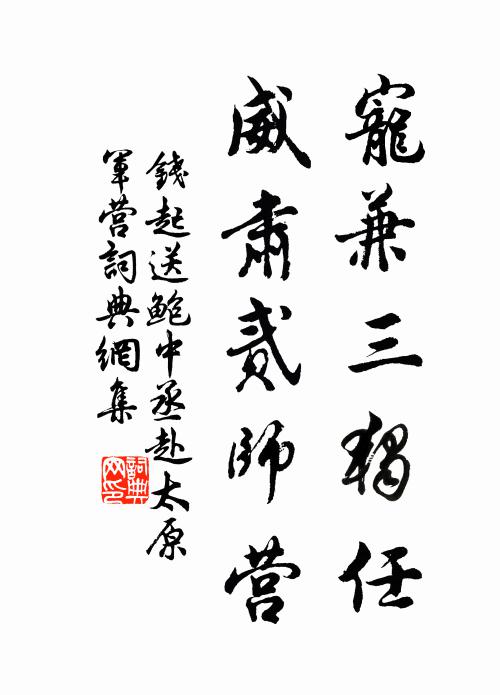 寵兼三獨任
威肅貳師营
錢起送鮑中丞赴太原
軍营詞典網集
詞典网印